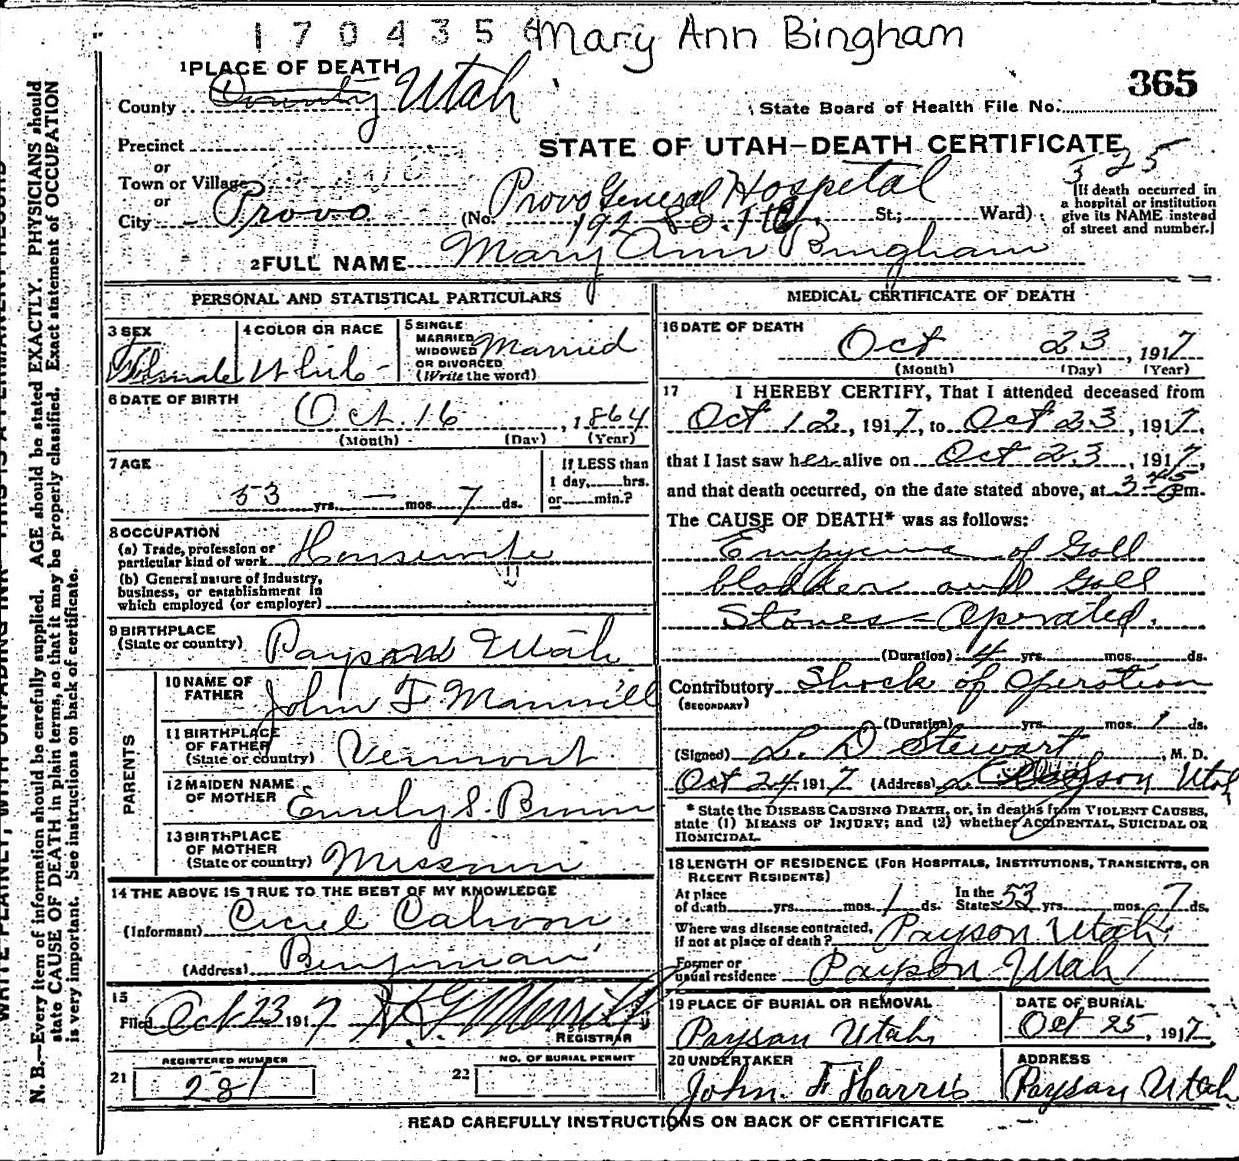 1704354 Mary Ann Bingham
1 PLACE OF DEATH
County County Utah
365
State Board of Health File No.
Precinct
STATE OF UTAH—DEATH CERTIFICATE
325
or
Town or Village
or
City Provo
(No. Provo General Hospital St.; Ward)
[If death occurred in
a hospital or institution
give its NAME instead
of street and number.]
2 FULL NAME Mary Ann Bingham
PERSONAL AND STATISTICAL PARTICULARS
3 SEX
Female
4 COLOR OR RACE
White
5 SINGLE
MARRIED
WIDOWED
OR DIVORCED
(Write the word)
Married
6 DATE OF BIRTH
Oct. 16, 1864
(Month) (Day) (Year)
7 AGE
53 yrs. — mos. 7 ds.
If LESS than
1 day, hrs.
or min.?
8 OCCUPATION
(a) Trade, profession or
particular kind of work Housewife
(b) General nature of industry,
business, or establishment in
which employed (or employer)
9 BIRTHPLACE
(State or country) Payson Utah
PARENTS
10 NAME OF
FATHER John F Manwill
11 BIRTHPLACE
OF FATHER
(State or country) Vermont
12 MAIDEN NAME
OF MOTHER Emily S. Brown
13 BIRTHPLACE
OF MOTHER
(State or country) Missouri
14 THE ABOVE IS TRUE TO THE BEST OF MY KNOWLEDGE
(Informant) Calvin
(Address) Benjamin
15
Filed Oct 23 1917 Merrill
REGISTRAR
REGISTERED NUMBER
21 281
NO. OF BURIAL PERMIT
22
MEDICAL CERTIFICATE OF DEATH
16 DATE OF DEATH
Oct 23, 1917
(Month) (Day) (Year)
17 I HEREBY CERTIFY, That I attended deceased from
Oct 12, 1917, to Oct 23, 1917,
that I last saw her alive on Oct 23, 1917,
and that death occurred, on the date stated above, at 3-45 Pm.
The CAUSE OF DEATH* was as follows:
Empyema of Gall
bladder and Gall
Stones – Operated.
(Duration) 4 yrs. mos. ds.
Contributory Shock of Operation
(SECONDARY)
(Duration) yrs. mos. 1 ds.
(Signed) L. D Stewart, M. D.
Oct 24 1917 (Address) Payson Utah
* State the DISEASE CAUSING DEATH, or, in deaths from VIOLENT CAUSES,
state (1) MEANS OF INJURY; and (2) whether ACCIDENTAL, SUICIDAL OR
HOMICIDAL.
18 LENGTH OF RESIDENCE (FOR HOSPITALS, INSTITUTIONS, TRANSIENTS, OR
RECENT RESIDENTS)
At place
of death yrs. mos. 1 ds.
In the
State 53 yrs. mos. 7 ds.
Where was disease contracted,
if not at place of death? Payson Utah
Former or
usual residence Payson Utah
19 PLACE OF BURIAL OR REMOVAL
Payson Utah
DATE OF BURIAL
Oct 25, 1917
20 UNDERTAKER
John F Harris
ADDRESS
Payson Utah
READ CAREFULLY INSTRUCTIONS ON BACK OF CERTIFICATE
N. B.—Every item of information should be carefully supplied. AGE should be stated EXACTLY. PHYSICIANS should
state CAUSE OF DEATH in plain terms, so that it may be properly classified. Exact statement of OCCUPATION
is very important. See instructions on back of certificate.